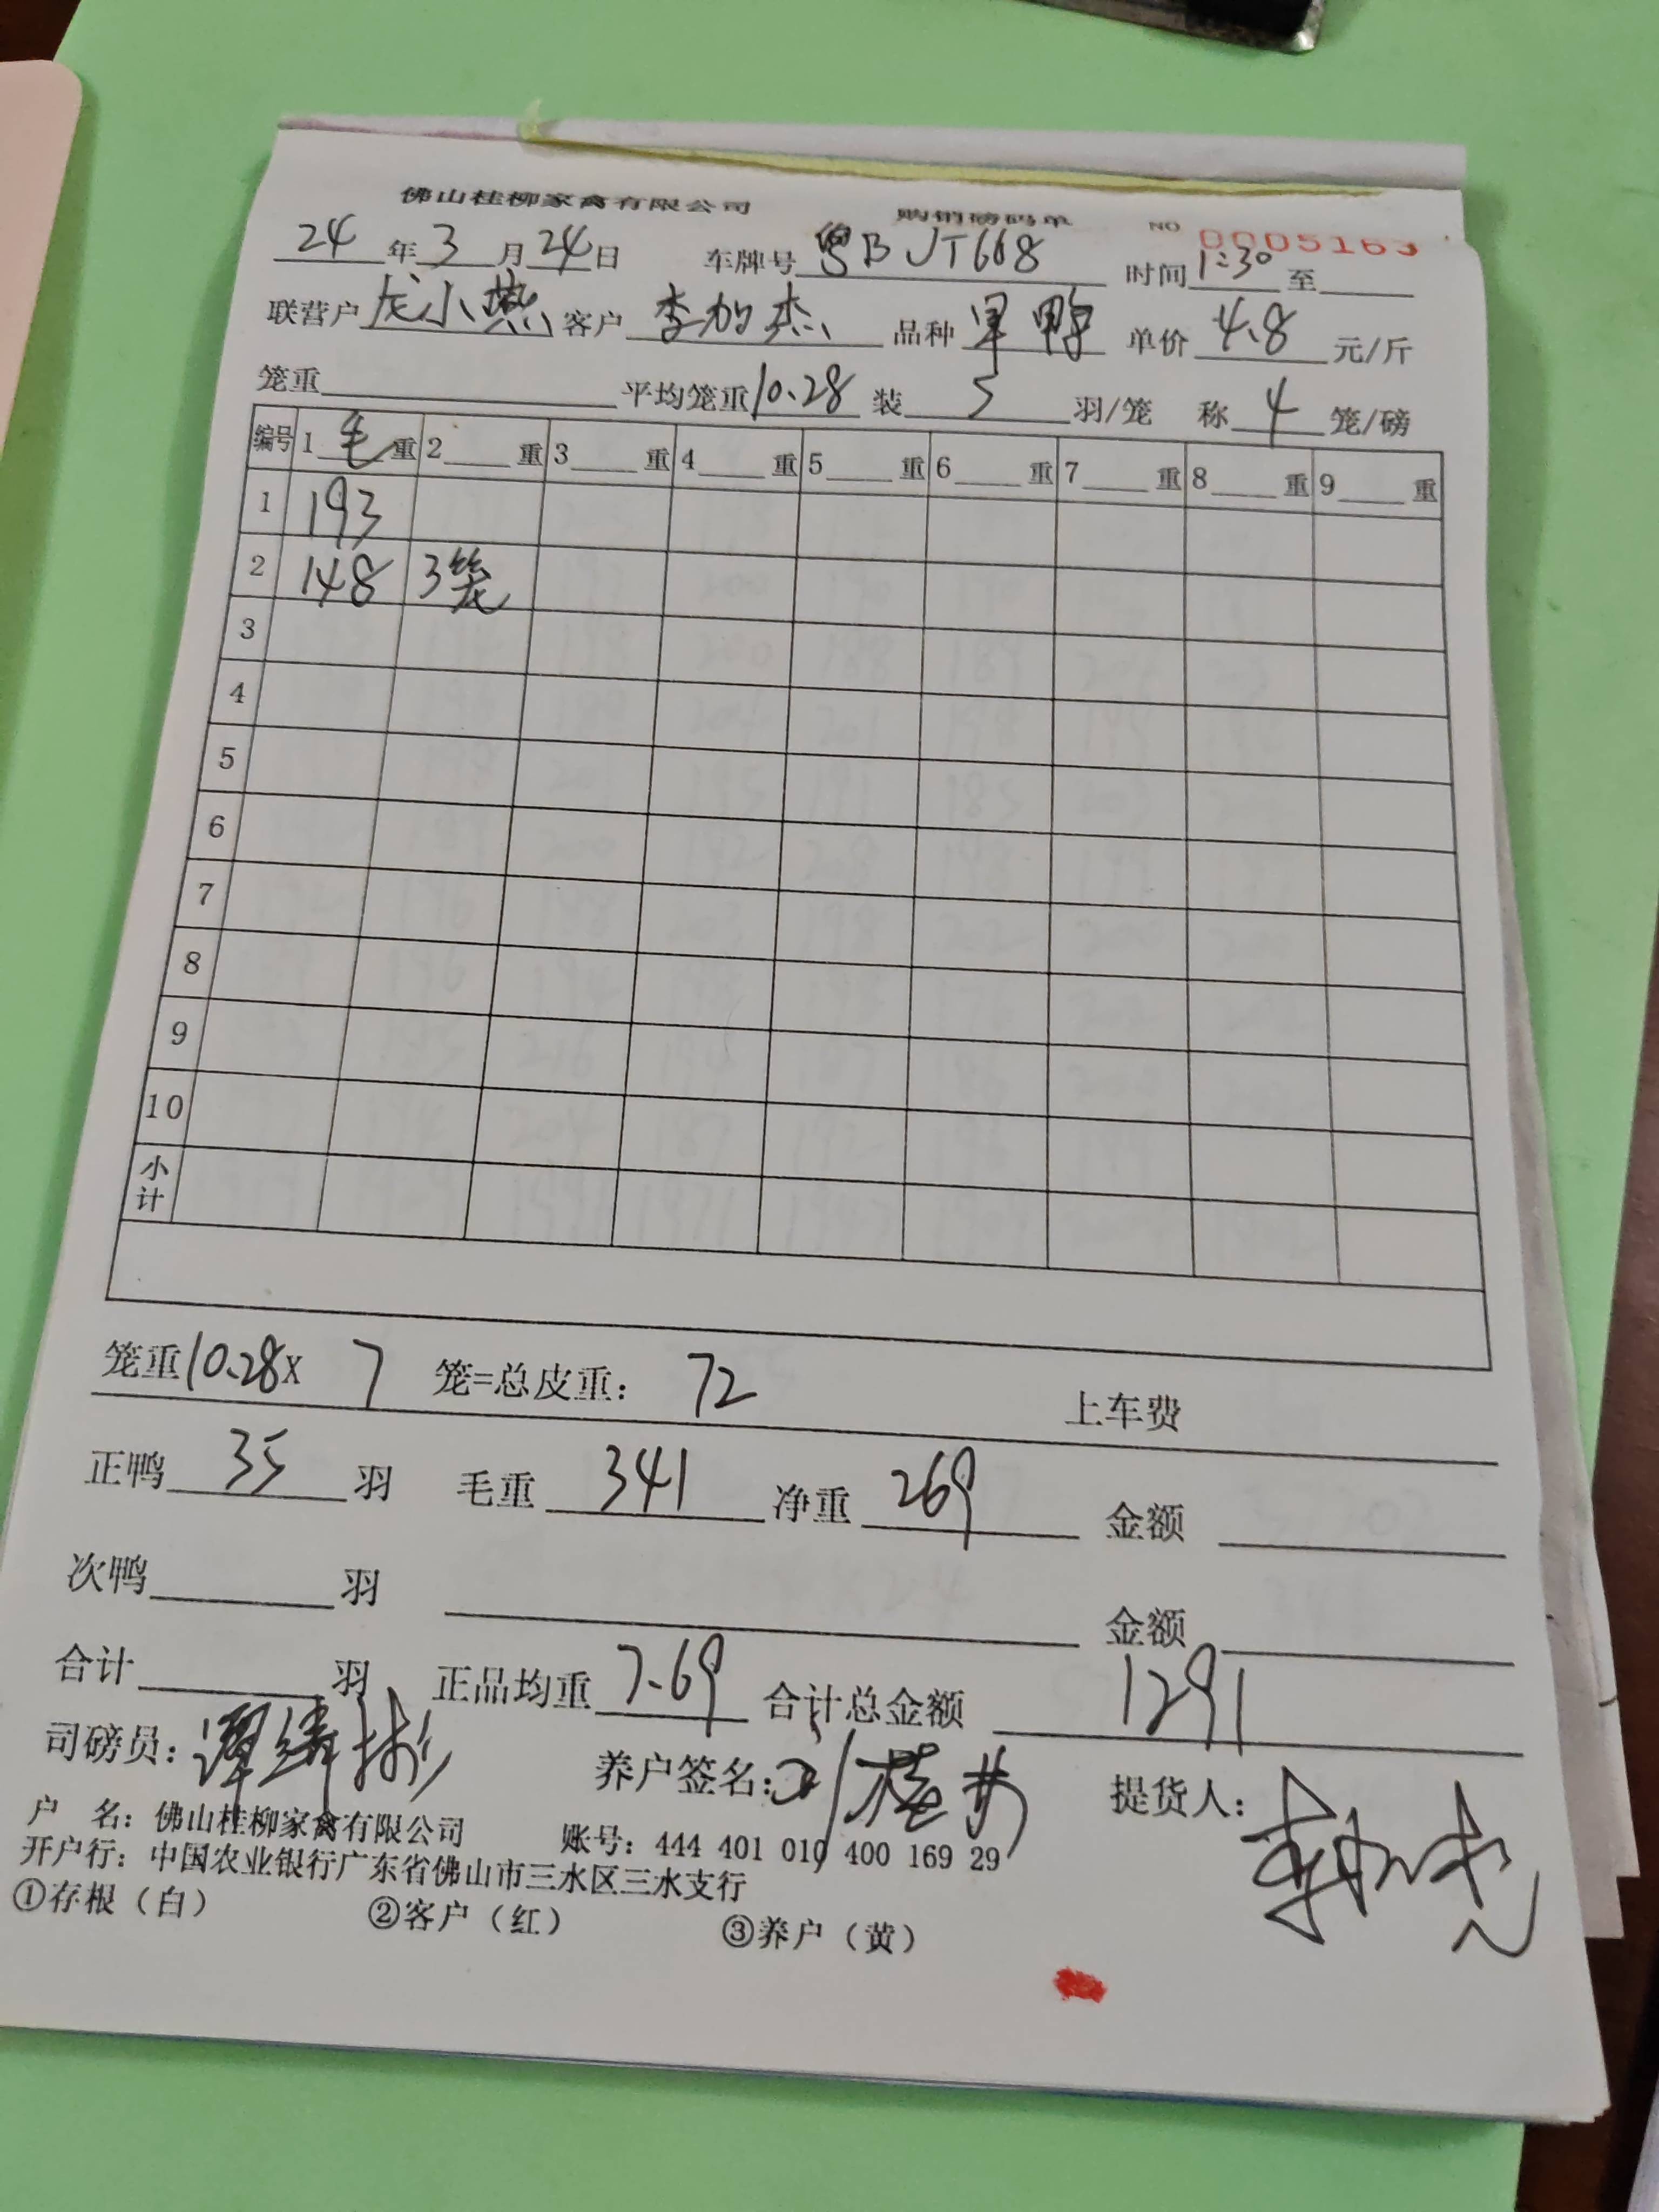 佛山桂柳家禽有限公司 购销磅码单 NO 0005163
24年3月24日 车牌号 粤BJT668 时间1:30至
联营户 龙小燕 客户 李加杰 品种 单鸭 单价 4.8 元/斤
笼重 平均笼重10.28 装 5 羽/笼 称 4 笼/磅
编号 1 毛 重 2 重 3 重 4 重 5 重 6 重 7 重 8 重 9 重
1 193
2 148 3笼
3
4
5
6
7
8
9
10
小计
笼重10.28x 7 笼=总皮重: 72 上车费
正鸭 35 羽 毛重 341 净重 269 金额
次鸭 羽 金额
合计 羽 正品均重 7.69 合计总金额 1291
司磅员: 养户签名: 提货人:
户 名: 佛山桂柳家禽有限公司 账号: 444 401 010 400 169 29
开户行: 中国农业银行广东省佛山市三水区三水支行
①存根(白) ②客户(红) ③养户(黄)